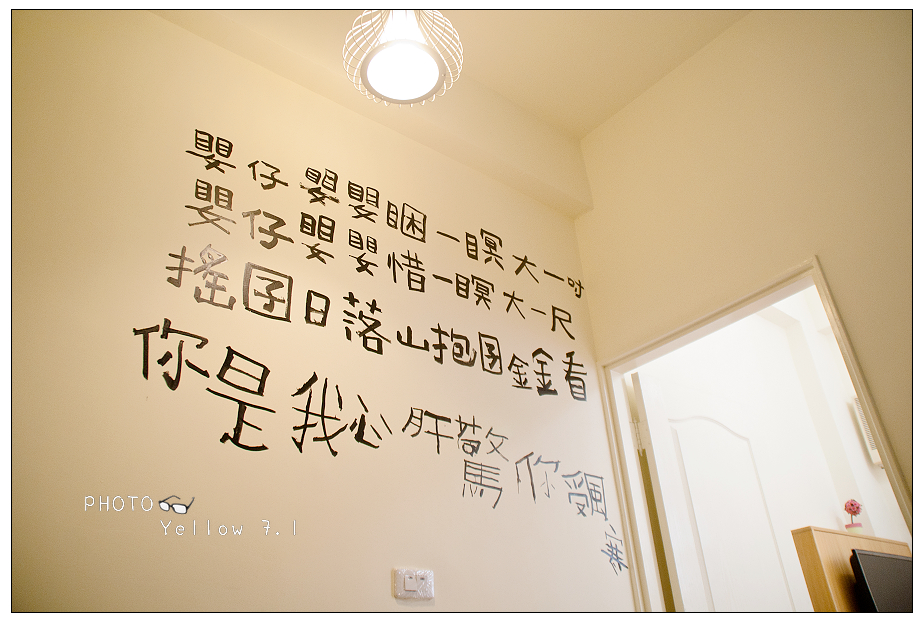 嬰仔嬰嬰睏一瞑大一吋
嬰仔嬰嬰惜一瞑大一尺
搖囝日落山抱囝金金看
你是我心肝驚你受風寒
PHOTO
Yellow 7.1